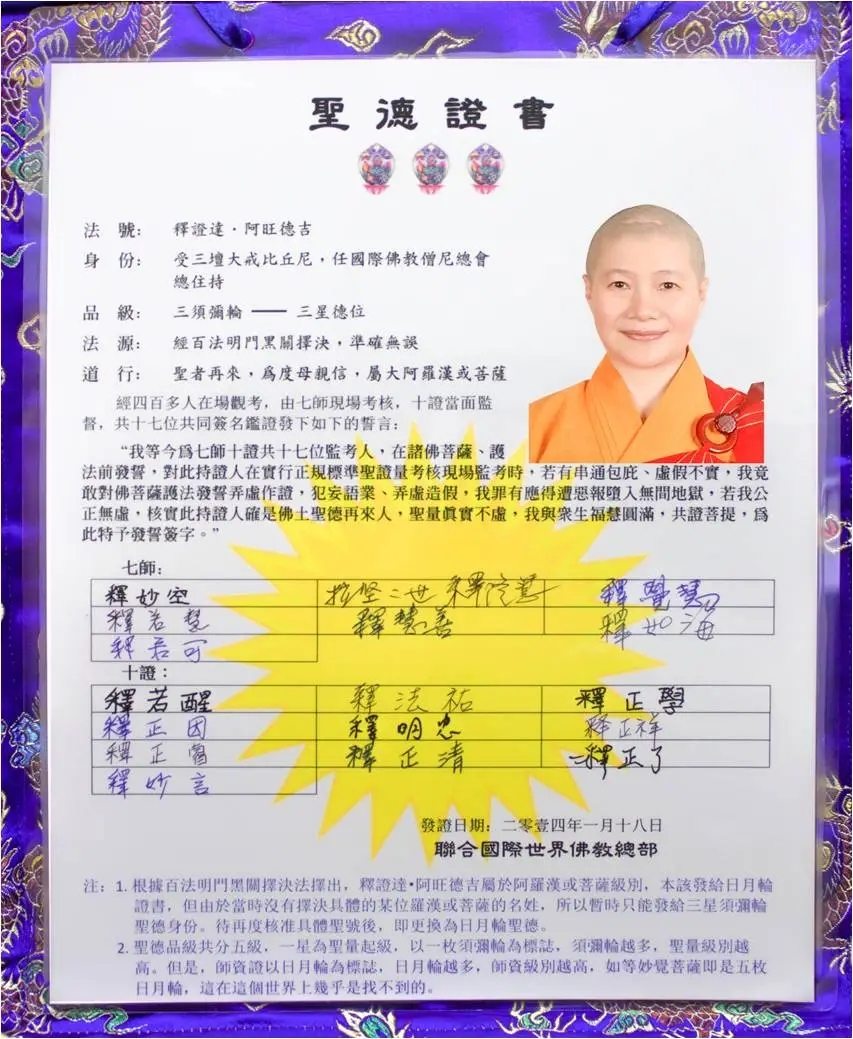 聖德證書
法 號： 釋證達．阿旺德吉
身 份： 受三壇大戒比丘尼，任國際佛教僧尼總會
總住持
品 級： 三須彌輪 —— 三星德位
法 源： 經百法明門黑關擇決，準確無誤
道 行： 聖者再來，為度母親信，屬大阿羅漢或菩薩
經四百多人在場觀考，由七師現場考核，十證當面監
督，共十七位共同簽名鑑證發下如下的誓言：
“我等今為七師十證共十七位監考人，在諸佛菩薩、護
法前發誓，對此持證人在實行正規標準聖證量考核現場監考時，若有串通包庇、虛假不實，我竟
敢對佛菩薩護法發誓弄虛作證，犯妄語業、弄虛造假，我罪有應得遭惡報墮入無間地獄，若我公
正無虛，核實此持證人確是佛土聖德再來人，聖量真實不虛，我與眾生福慧圓滿，共證菩提，為
此特予發誓簽字。”
七師：
釋妙空 拉堅二世 釋覺慧
釋若慧 釋慧善 釋如海
釋若可
十證：
釋若醒 釋法祐 釋正學
釋正因 釋明忠 釋正祥
釋正 釋正清 釋正了
釋妙言
發證日期：二零壹四年一月十八日
聯合國際世界佛教總部
注：1. 根據百法明門黑關擇決法擇出，釋證達•阿旺德吉屬於阿羅漢或菩薩級別，本該發給日月輪
證書，但由於當時沒有擇決具體的某位羅漢或菩薩的名姓，所以暫時只能發給三星須彌輪
聖德身份。待再度核准具體聖號後，即更換為日月輪聖德。
2. 聖德品級共分五級，一星為聖量起級，以一枚須彌輪為標誌，須彌輪越多，聖量級別越
高。但是，師資證以日月輪為標誌，日月輪越多，師資級別越高，如等妙覺菩薩即是五枚
日月輪，這在這個世界上幾乎是找不到的。